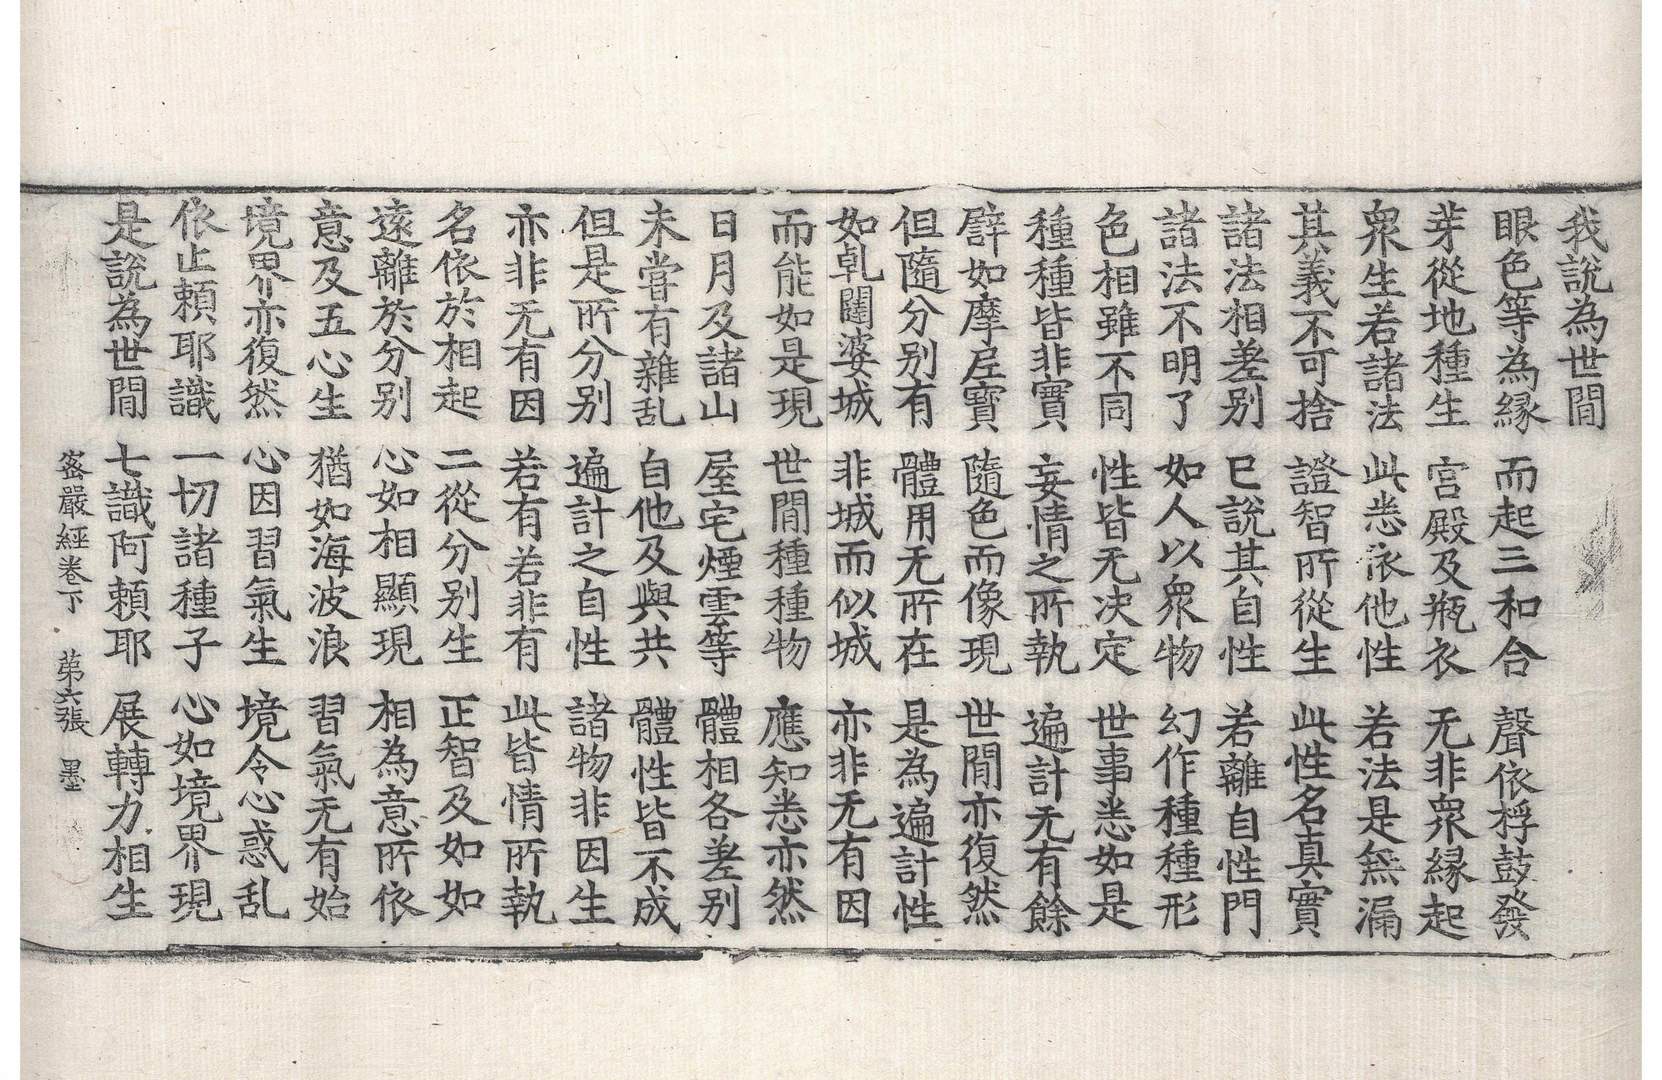 我說為世間
眼色等為緣　而起三和合　聲依桴鼓發
芽從地種生　宮殿及瓶衣　无非眾緣起
眾生若諸法　此悉依他性　若法是無漏
其義不可捨　證智所從生　此性名真實
諸法相差別　已說其自性　若離自性門
諸法不明了　如人以眾物　幻作種種形
色相雖不同　性皆无决定　世事悉如是
種種皆非實　妄情之所執　遍計无有餘
譬如摩尼寶　隨色而像現　世間亦復然
但隨分別有　體用无所在　是為遍計性
如乹闥婆城　非城而似城　亦非无有因
而能如是現　世間種種物　應知悉亦然
日月及諸山　屋宅煙雲等　體相各差別
未嘗有雜乱　自他及與共　體性皆不成
但是所分別　遍計之自性　諸物非因生
亦非无有因　若有若非有　此皆情所執
名依於相起　二從分別生　正智及如如
遠離於分別　心如相顯現　相為意所依
意及五心生　猶如海波浪　習氣无有始
境界亦復然　心因習氣生　境令心惑乱
依止賴耶識　一切諸種子　心如境界現
是說為世間　七識阿賴耶　展轉力相生
密嚴經卷下　苐六張　墨